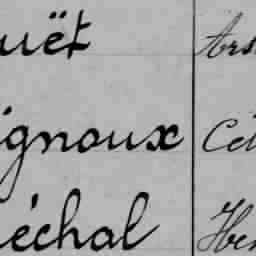 uët Ars
ignoux Cél
échal Hen